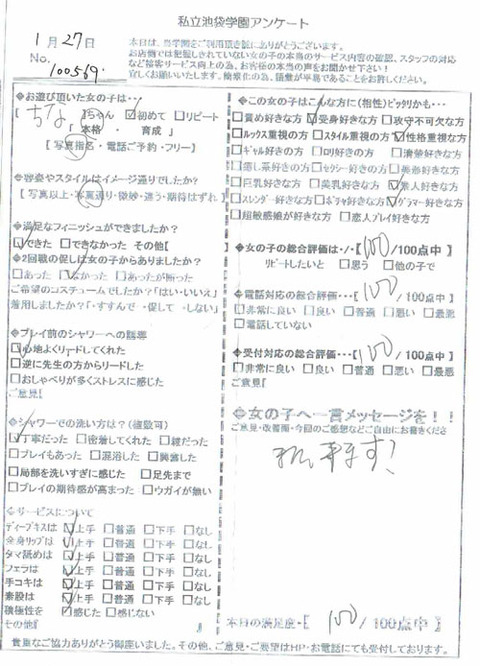 私立池袋学園アンケート
1月27日
No. 100569
本日は、当学園をご利用頂き誠にありがとうございます。
お店側では把握しきれていない女の子の本当のサービス内容の確認、スタッフの対応
など接客サービス向上の為、お客様の本当の声をお聞かせ下さい!
◆お遊び頂いた女の子は・・
ちゃん □初めて □リピート
「本格・育成」
【写真指名・電話ご予約・フリー】
◆容姿やスタイルはイメージ通りでしたか?
【写真以上・写真通り・微妙・違う・期待はずれ】
◆満足なフィニッシュができましたか?
□できた □できなかった その他[
◆2回戦の促しは女の子からありましたか?
□あった □なかった □あったが断った
ご希望のコスチュームでしたか?「はい・いいえ」
◆プレイ前のシャワーへの誘導
□心地よくリードしてくれた
□逆に先生の方からリードした
□おしゃべりが多くストレスに感じた
ご意見[
◆シャワーでの洗い方は?(複数可)
□丁寧だった □密着してくれた □雑だった
□プレイもあった □混浴した □興奮した
□局部を洗いすぎに感じた □足先まで
□プレイの期待感が高まった □ウガイが無い
◆サービスについて
ディープキスは □上手 □普通 □下手 □なし
全身リップは □上手 □普通 □下手 □なし
タマ舐めは □上手 □普通 □下手 □なし
フェラは □上手 □普通 □下手 □なし
手コキは □上手 □普通 □下手 □なし
素股は □上手 □普通 □下手 □なし
積極性を □感じた □感じない
その他[ 』
◆この女の子はこんな方に(相性)ピッタリかも・・
□責め好きな方 □受身好きな方 □攻守不可欠な方
□ルックス重視の方 □スタイル重視の方 □性格重視な方
□ギャル好きの方 □ロリ好きの方 □清楚好きな方
□癒し系好きの方 □セクシー好きの方
□巨乳好きな方 □美乳好きな方 □素人好きな方
□スレンダー好きな方 □ギャル好きな方 □グラマー好きな方
□超敏感娘が好きな方 □恋人プレイ好きな方
◆女の子の総合評価は・・【100/100点中】
リピートしたいと □思う □他の子で
◆電話対応の総合評価・・・【100/100点中】
□非常に良い □良い □普通 □悪い □最悪
□電話していない
◆受付対応の総合評価・・・【100/100点中】
□非常に良い □良い □普通 □悪い □最悪
ご意見[
◆女の子へ一言メッセージを!!
ご意見・改善面・今回のご感想などご自由にお書きくださ
また来ます!
本日の満足度・【100/100点中】
貴重なご協力ありがとう御座いました。その他、ご意見・ご要望はHP・お電話にても受付しております。